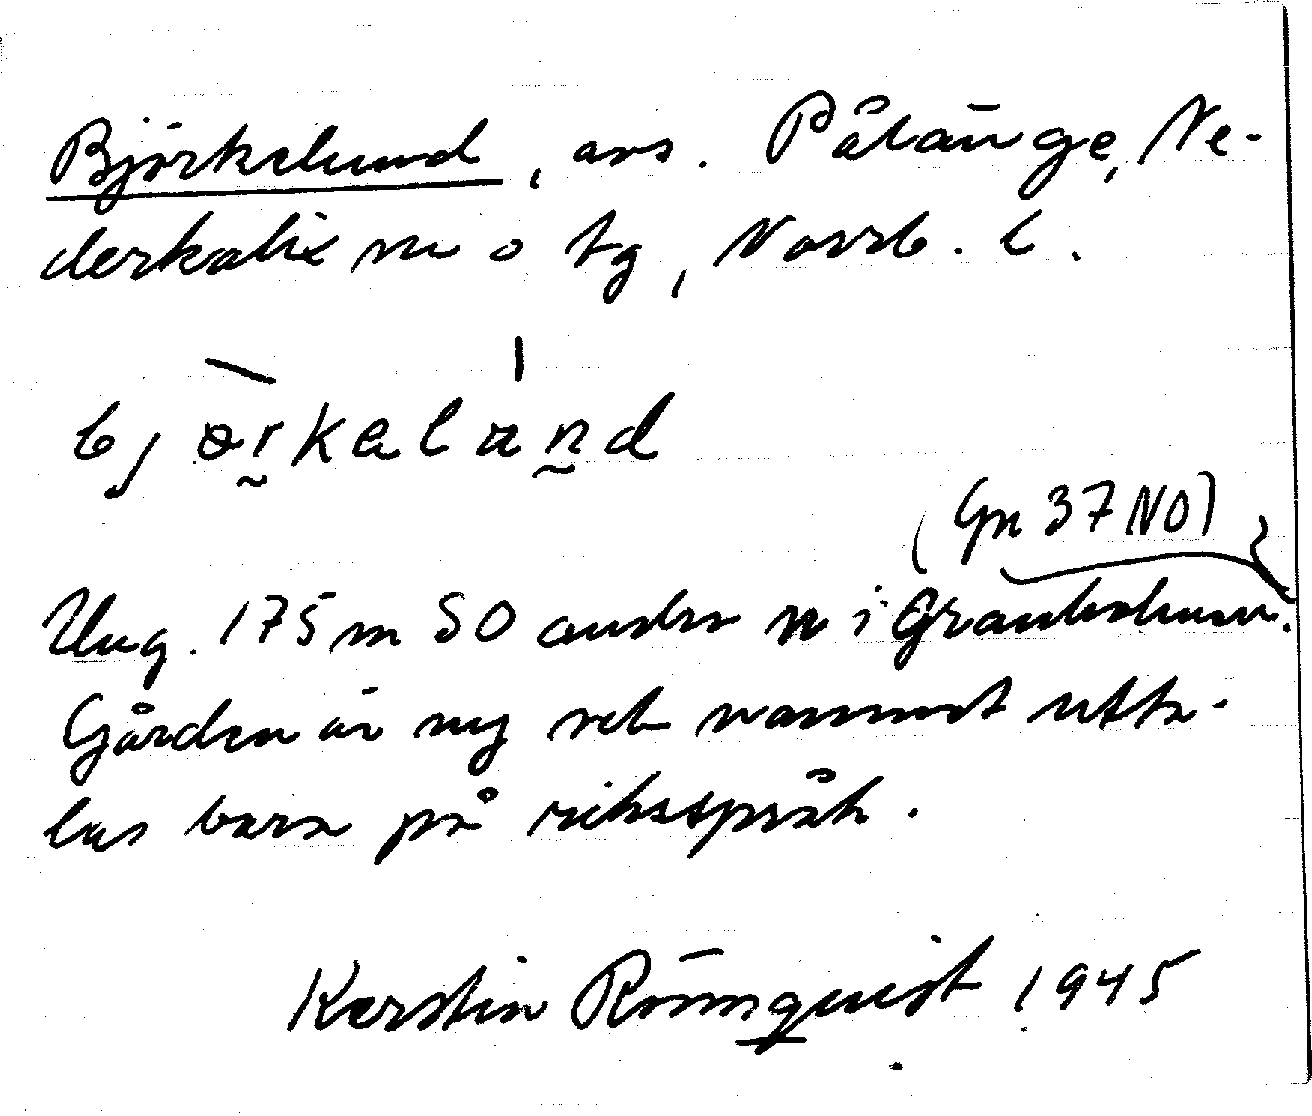 Björkelund, avs. Pålänge, Ne-
derkalix sn o tg, Norrb. l.
bjørkelund
(Gn 37 NO)
Ung. 175 m SO andra n i
Gården är ny och namnet utta-
las bara på riksspråk.
Kerstin Rönnquist 1945